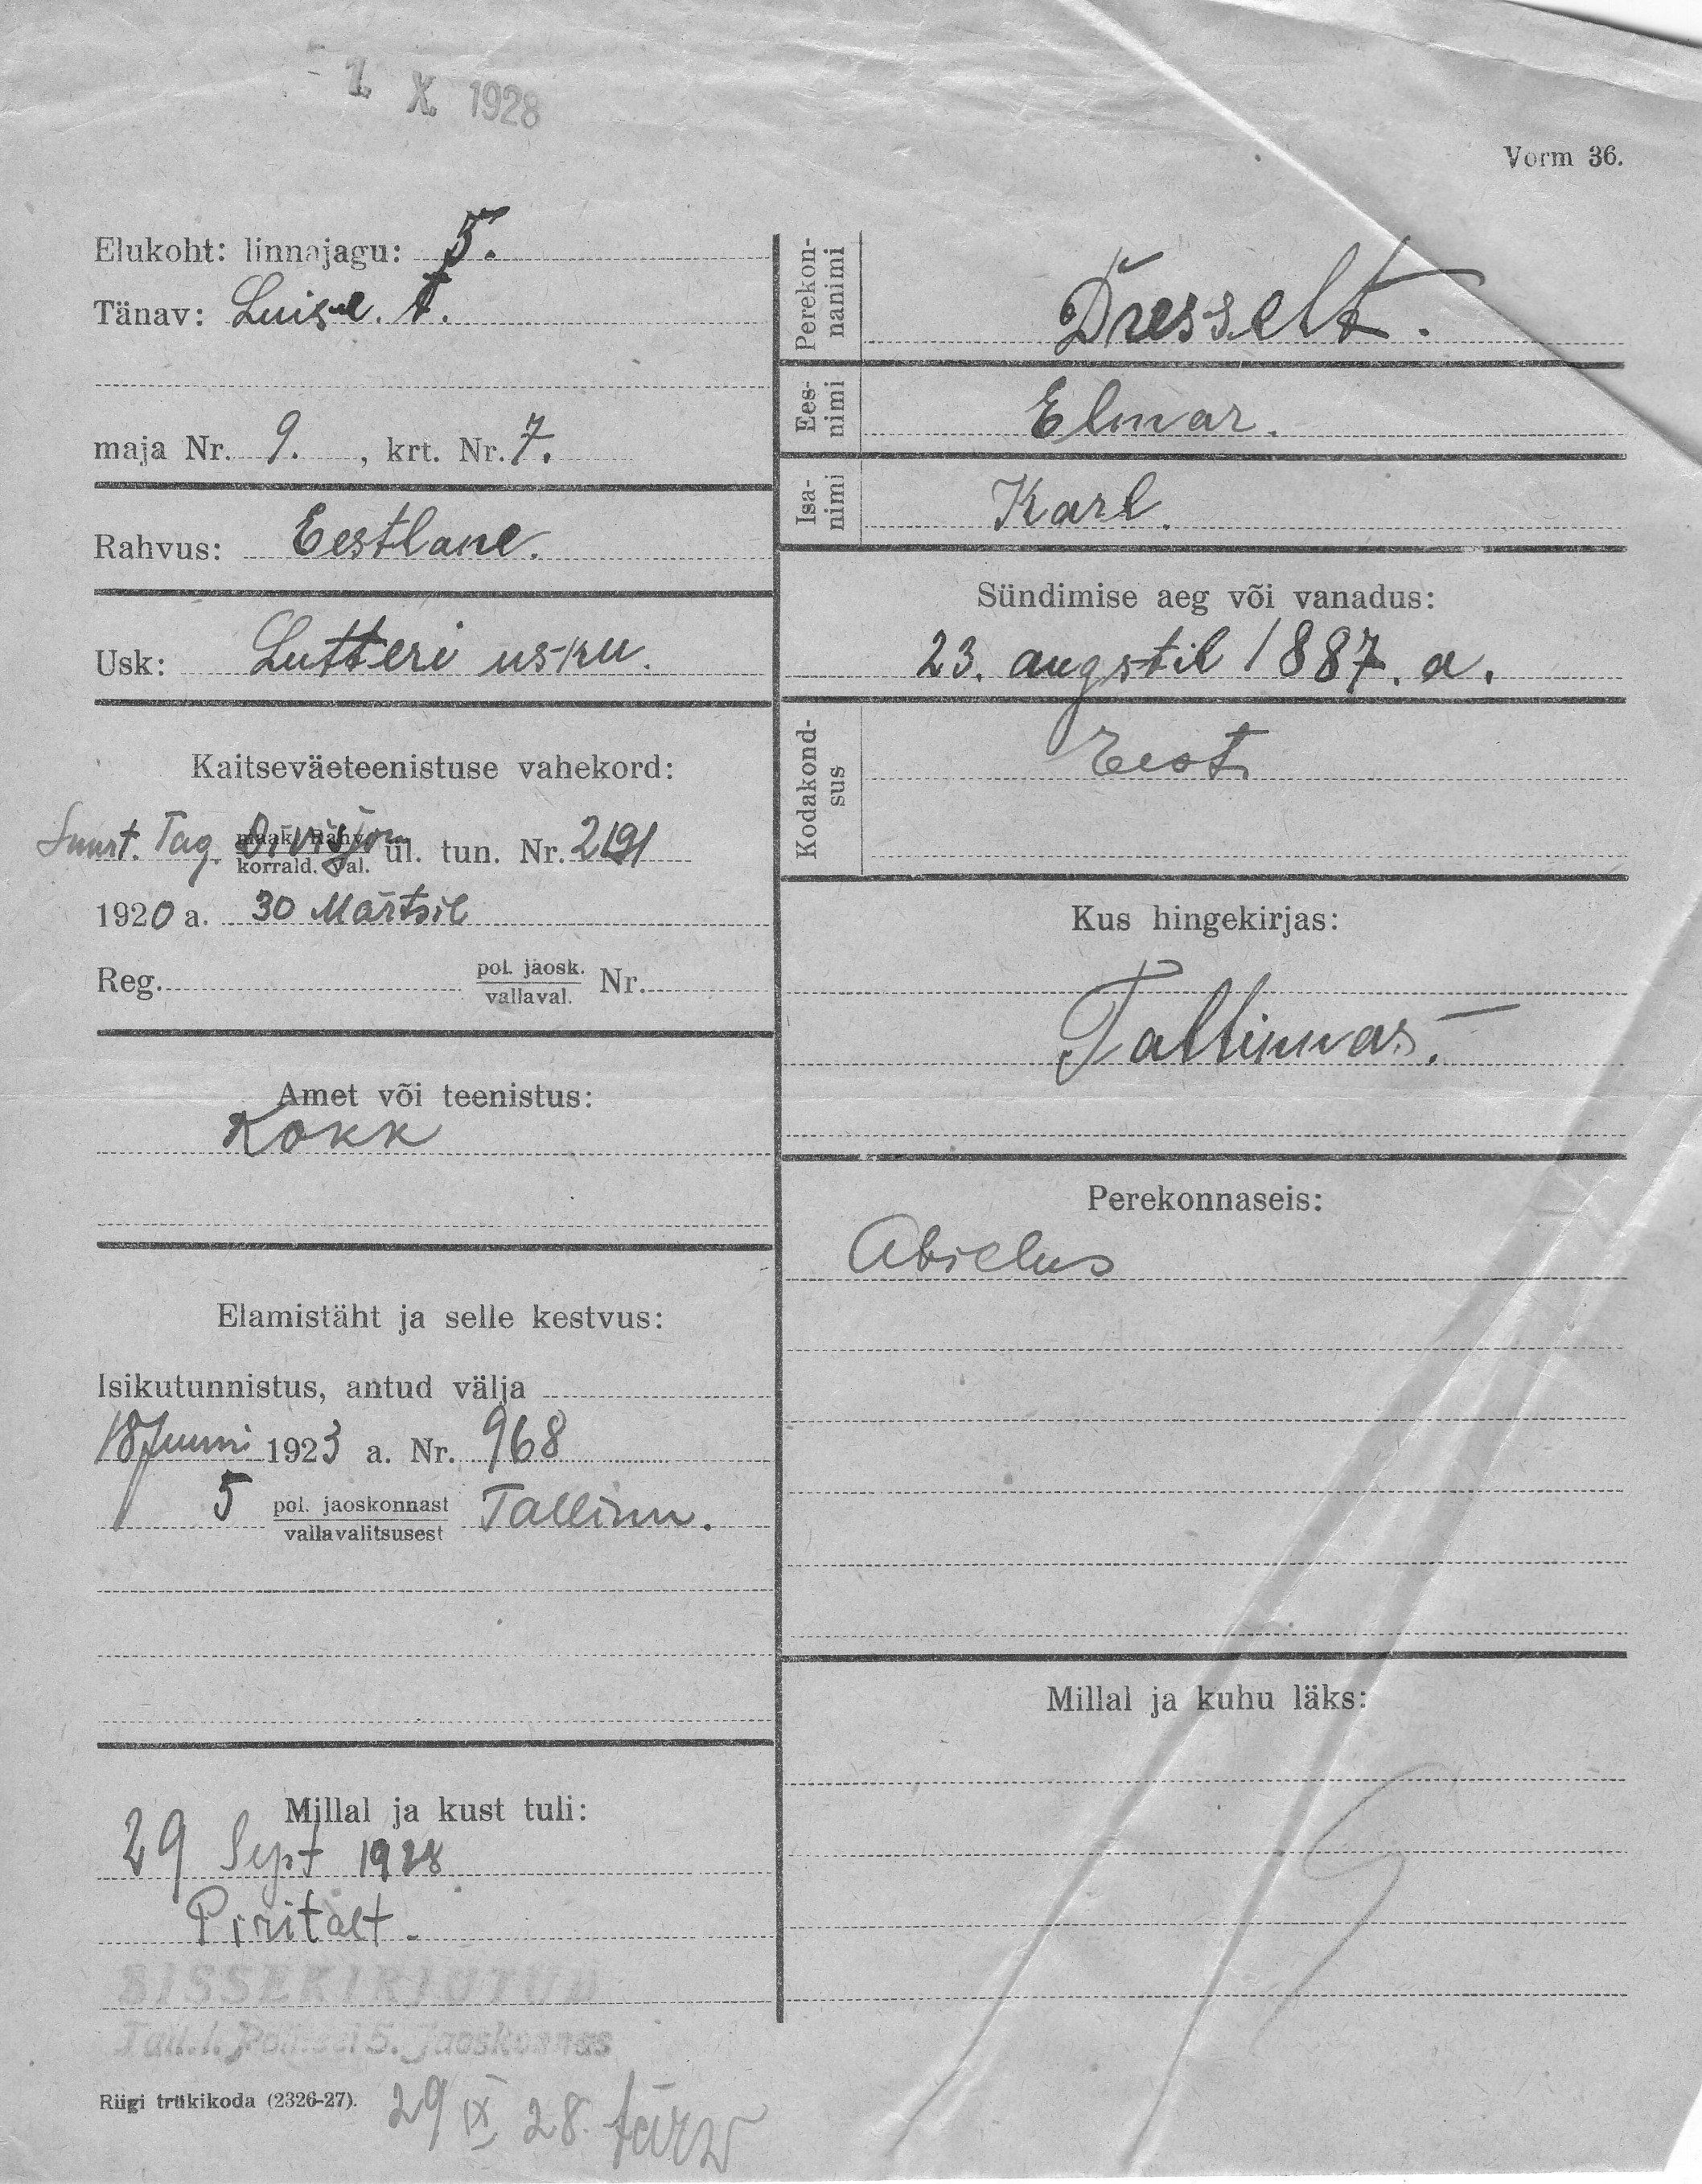 - 1. X. 1928
Vorm 36.
Elukoht: linnajagu: 5.
Tänav: Luise. t.
maja Nr. 9. , krt. Nr. 7.
Rahvus: Eestlane.
Usk: Lutteri usku.
Kaitseväeteenistuse vahekord:
Suurt. Tag. Divisjon ül. tun. Nr. 2191
korrald. val.
1920 a. 30 Märtsil
Reg. pol. jaosk. Nr.
vallaval.
Amet või teenistus:
Kokk
Elamistäht ja selle kestvus:
Isikutunnistus, antud välja
18 Juuni 1923 a. Nr. 968
5 pol. jaoskonnast Tallinn.
vallavalitsusest
Millal ja kust tuli:
29 Sept 1928
Piritalt.
SISSEKIRJUTUD
Tall. l. Politsei 5. Jaoskonnas
Riigi trükikoda (2326-27).
29 IX 28.
Perekon-
nanimi
Dresselt.
Ees-
nimi
Elmar.
Isa-
nimi
Karl.
Sündimise aeg või vanadus:
23. augstil 1887. a.
Kodakond-
sus
Eest
Kus hingekirjas:
Tallinnas.
Perekonnaseis:
Abielus
Millal ja kuhu läks: